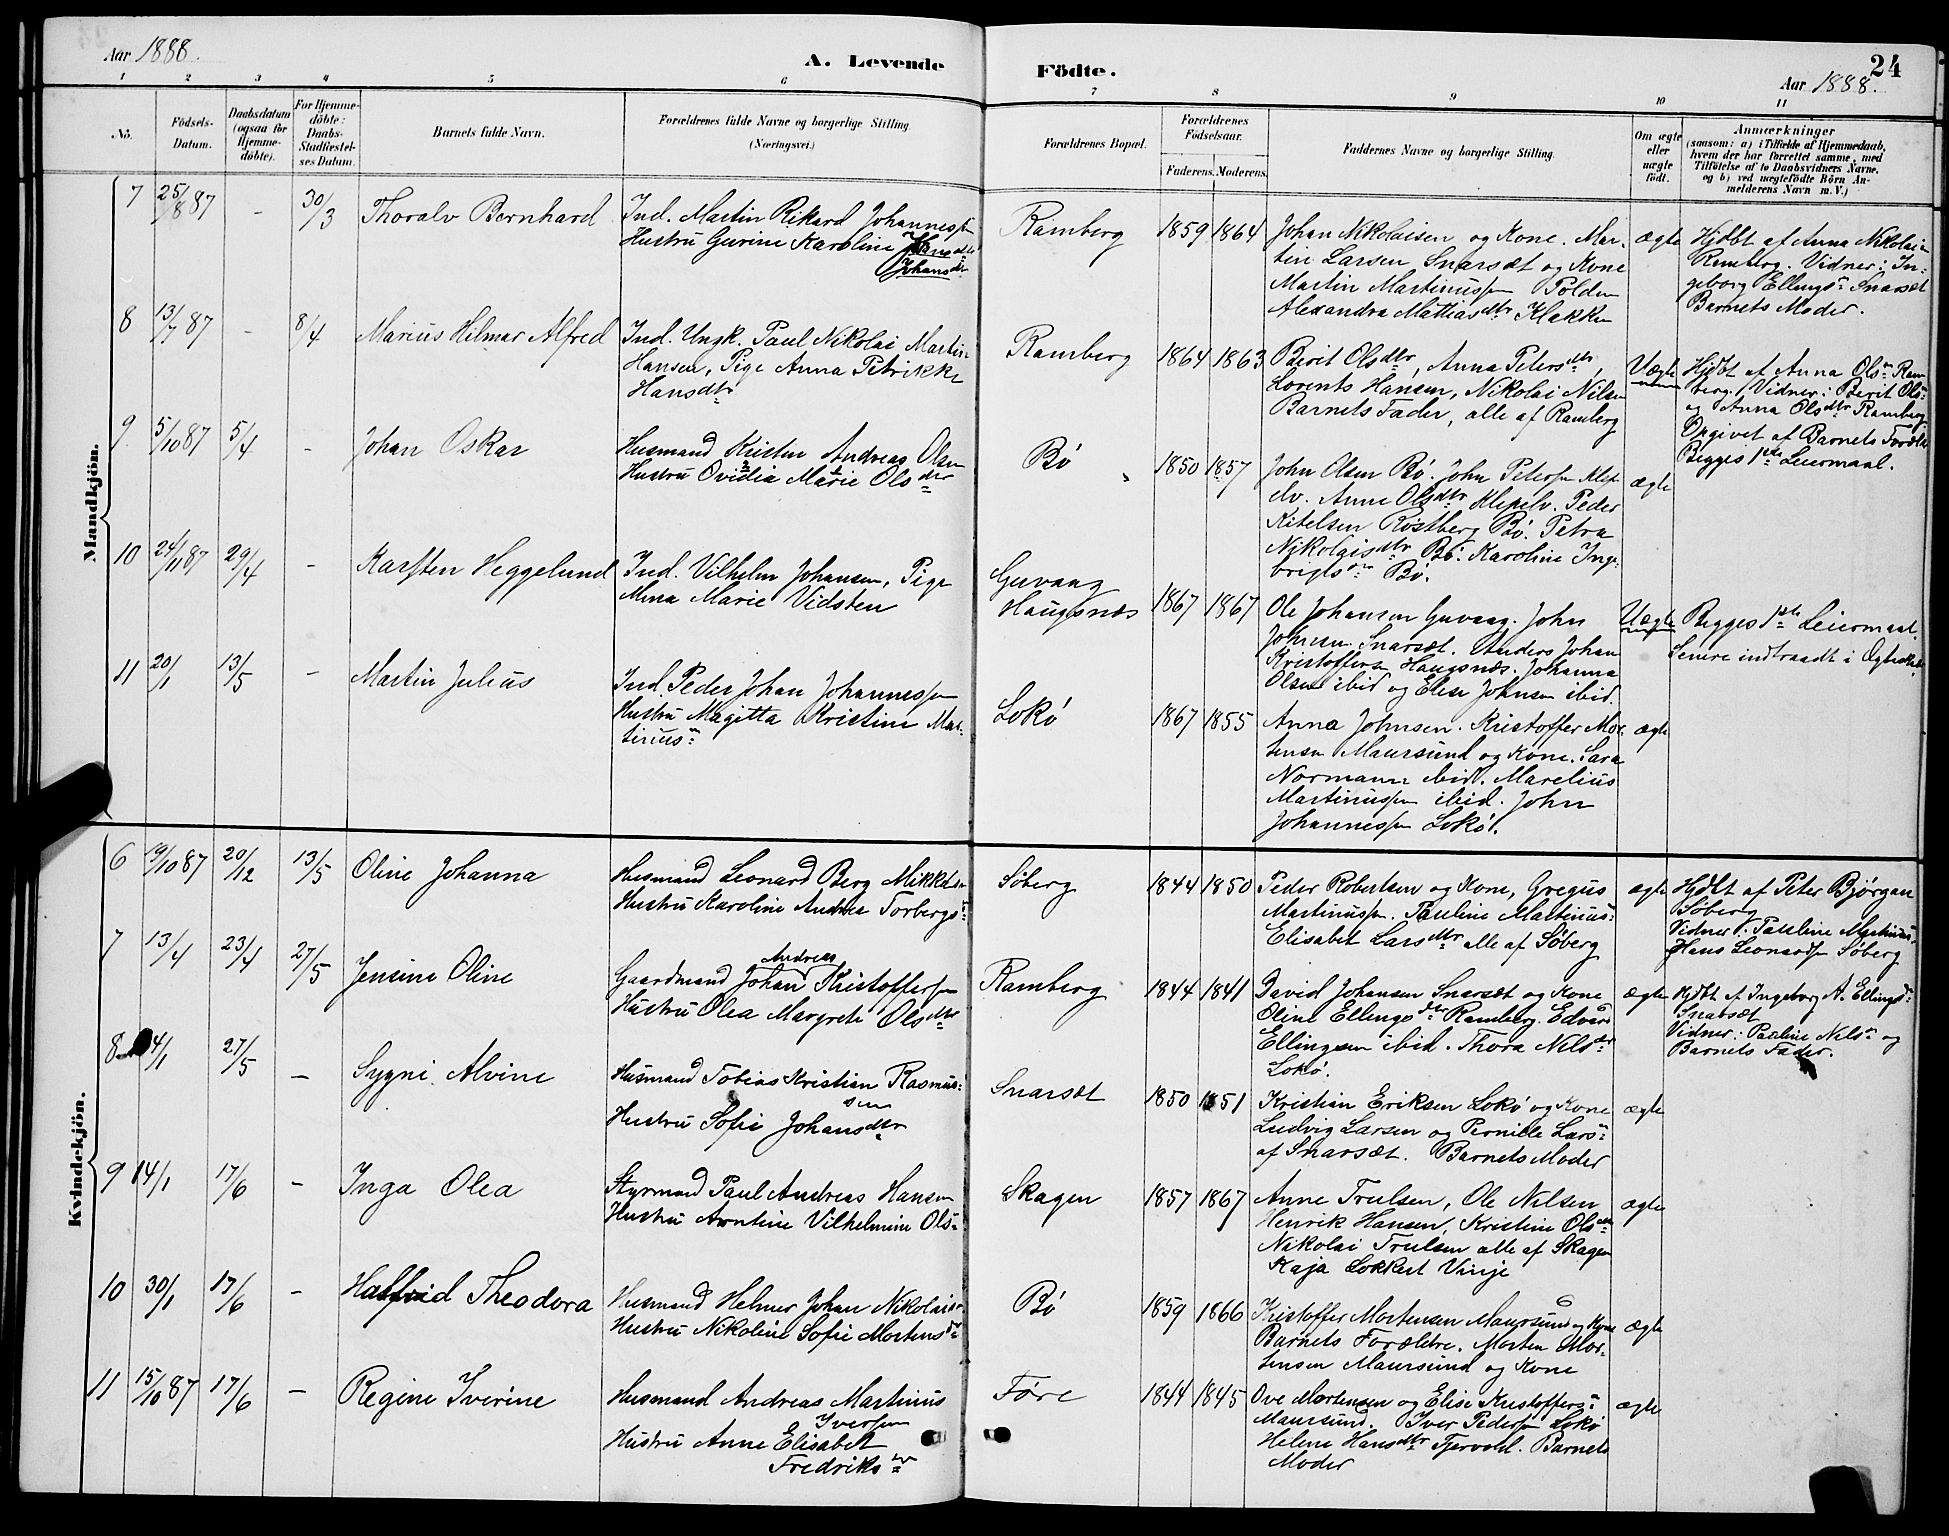 Aar 1888.
A. Levende
Födte.
24
Aar 1888.
1 2 3 4 5 6 7 8 9 10 11
No.
Födsels-Datum.
Daabsdatum (ogsaa for Hjemme-döbte).
For Hjemme-döbte: Daabs-Stadfæstel-ses Datum.
Barnets fulde Navn.
Forældrenes fulde Navne og borgerlige Stilling
(Næringsvei.)
Forældrenes Bopæl.
Forældrenes Födselsaar.
Faderens. Moderens.
Faddernes Navne og borgerlige Stilling.
Om ægte eller uægte födt.
Anmærkninger
(saasom: a) i Tilfælde af Hjemmedaab,
hvem der har forrettet samme, med
Tilföielse af to Daabsvidners Navne.
og b) ved uægtefödte Börn An-
melderens Navn m. V.)
Mandkjön.
7 25/8 87 - 30/3 Thoralv Bernhard
Ind. Martin Rikard Johannessen
Hustru Gurine Karoline
Johansdtr
Ramberg 1859 1864
Johan Nikolaisen og Kone. Mar-
tin Larsen Snarsæt og Kone
Martin Martinussen Polden
Alexandra Mattiasdtr Klakken
ægte
Hjdbt af Anna Nikolais
Ramberg. Vidner: In-
geborg Ellingsd Snarsæt
Barnets Moder.
8 13/7 87 - 8/4 Marius Hilmar Alfred
Ind. Ungk. Paul Nikolai Martin
Hansen, Pige Anna Petrikke
Hansdtr
Ramberg 1864 1863
Berit Olsdtr, Anna Petersdtr,
Lorents Hansen, Nikolai Nilsen
Barnets Fader, alle af Ramberg
Uægte
Hjdbt af Anna Olsd Ram-
berg. Vidner: Berit Olsd
og Anna Olsdtr Ramberg.
Opgivet af Barnets Foræld.
Begges 1ste Leiermaal.
9 5/10 87 5/4 - Johan Oskar
Husmand Kristen Andreas Olsen
Hustru Ovidia Marie Olsdtr
Bø 1850 1857
John Olsen Bø. John Petersen Klep-
elv. Anne Olsdtr Klepelv. Peder
Kitelsen Røstberg Bø. Petra
Nikolaisdtr Bø. Karoline Inge-
brigtsdtr Bø.
ægte
10 24/11 87 29/4 - Karsten Heggelund
Ind. Vilhelm Johansen, Pige
Mina Marie Vidsten
Guvaag
Haugsnæs
1867 1867
Ole Johansen Guvaag. John
Johnsen Snarsæt. Anders Johan
Kristoffersen Haugsnæs. Johanna
Olsen ibid og Elise Johnsen ibid.
Uægte
Begges 1ste Leiermaal.
Senere indtraadt i Ægteskab.
11 20/1 13/5 - Martin Julius
Ind. Peder Johan Johannessen
Hustru Magitta Kristine Mar-
tinusd
Lokø 1867 1855
Anna Johnsen. Kristoffer Mor-
tensen Maursund og Kone. Sara
Normann ibid. Marelius
Martinussen ibid. John
Johannessen Lokø.
ægte
Kvindekjön.
6 19/10 87 20/12 13/5 Oline Johanna
Husmand Leonard Berg Mikkelsen
Hustru Karoline Andrea Torbergsd
Søberg 1844 1850
Peder Robertsen og Kone, Gregus
Martinussen. Pauline Martinusd
Elisabet Larsdtr alle af Søberg
ægte
Hjdbt af Peter Bjørgan
Søberg
Vidner: Pauline Martinusd
Hans Leonardsen Søberg
7 13/4 23/4 27/5 Jensine Oline
Andreas
Gaardmand Johan Kristoffersen
Hustru Olea Margrete Olsdtr
Ramberg 1844 1841
David Johansen Snarsæt og Kone
Oline Ellingsdtr Ramberg. Edvard
Ellingsen ibid. Thora Nilsdtr
Lokø.
ægte
Hjdbt af Ingeborg A. Ellingsd
Snarsæt
Vidner: Pauline Nilsd og
Barnets Fader.
8 4/1 27/5 - Sygni Alvine
Husmand Tobias Kristian Rasmus-
sen
Hustru Sofie Johansdtr
Snarsæt 1850 1851
Kristian Eriksen Lokø og Kone
Ludvig Larsen og Pernille Larsd
af Snarsæt. Barnets Moder
ægte
9 14/1 17/6 - Inga Olea
Styrmand Paul Andreas Hansen
Hustru Arntine Vilhelmine Olsd
Skagen 1857 1867
Anne Trulsen, Ole Nilsen
Henrik Hansen, Kristine Olsdtr
Nikolai Trulsen alle af Skagen
Kaja Lokkert Vinje
ægte
10 30/1 17/6 - Halfrid Theodora
Husmand Helmer Johan Nikolaisen
Hustru Nikoline Sofie Mortensd
Bø 1859 1866
Kristoffer Mortensen Maursund og Kone
Barnets Forældre. Morten Mor-
tensen Maursund og Kone
ægte
11 15/10 87 17/6 - Regine Iverine
Husmand Andreas Martinus
Iversen
Hustru Anne Elisabet
Fredriksd
Føre 1844 1845
Ove Mortensen og Elise Kristoffersd
Maursund. Iver Pedersen Lokø
Helene Hansdtr Tjervold. Barnets
Moder
ægte